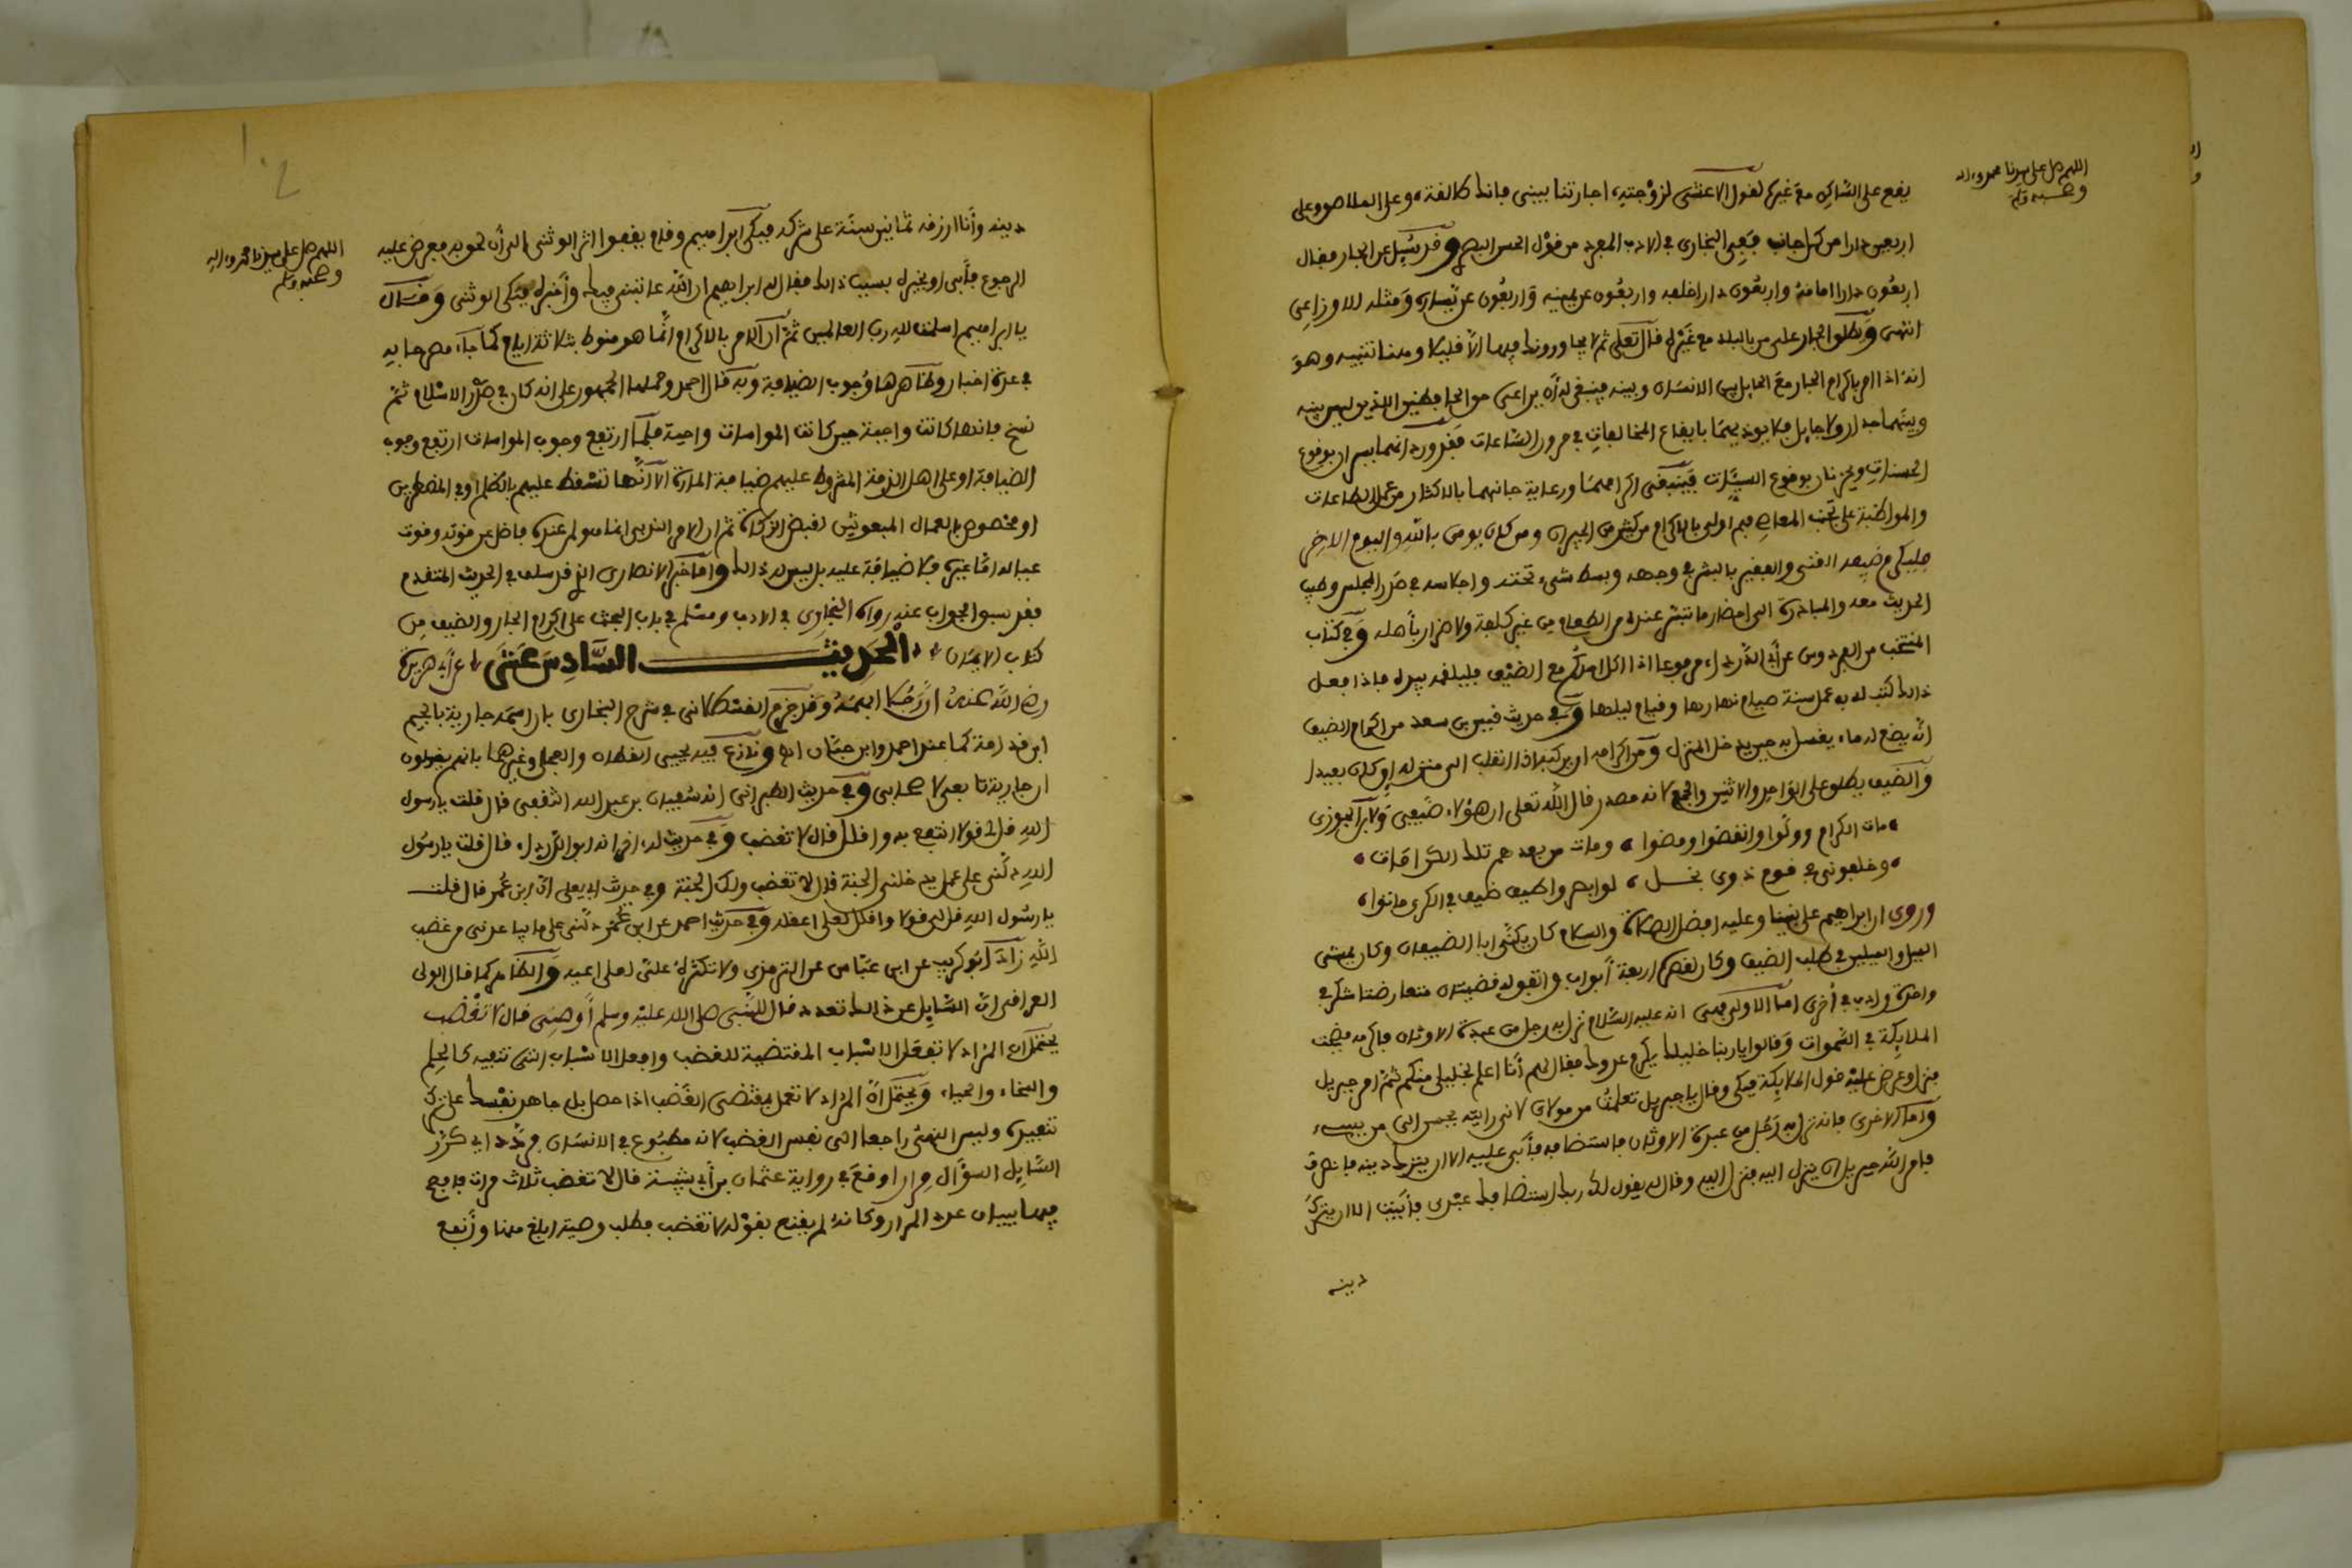 اللهم صل على سيدنا محمد وءاله
وصحبه وسلم
يقع على الساكن مع غيره لقول الاعشى لزوجته اجارتنا بيني فانك طالقة وعلى الملاصق وعلى
اربعين دارا من كل جانب فعن البخاري في الادب المفرد من قول الحسن البصري وقد سئل عن الجار فقال
اربعون دارا امامه واربعون دارا خلفه واربعون عن يمينه واربعون عن يساره ومثله للاوزاعي
انتهى ويطلق الجار على من بالبلد مع غيره قال تعلى ثم لا يجاورونك فيها الا قليلا وهنا تنبيه وهو
انه اذا امر باكرام الجار مع الحايل بين الانسان وبينه فينبغي له أن يراعى حق الحافظين اللذين ليس بينه
وبينهما جدار ولا حايل فلا يوذيهما بايقاع المخالفات في مرور الساعات فقد ورد انهما يسران بوقوع
الحسنات ويحزنان بوقوع السيئات فينبغي اكرامهما ورعاية جانبهما بالاكثار من عمل الطاعات
والمواظبة على تجنب المعاصي فهم اولى بالاكرام من كثير من الجيران ومن كان يومن بالله واليوم الاخر
فليكرم ضيفه الغني والفقير بالبشر في وجهه وبسط شيء تحته واجلاسه في صدر المجلس وطيب
الحديث معه والمبادرة الى احضار ما تيسر عنده من الطعام من غير كلفة ولا اضرار بأهله وفي كتاب
المنتخب من الفردوس عن أبي الدرداء مرفوعا اذا اكل احدكم مع الضيف فليلقمه بيده فاذا فعل
ذالك كتب له به عمل سنة صيام نهارها وقيام ليلها وفي حديث قيس بن سعد من اكرام الضيف
أنه يضع له ماء يغسل به حين يدخل المنزل ومن اكرامه ان يركبه اذا انقلب الى منزله ان كان بعيدا
والضيف يطلق على الواحد والاثنين والجمع لانه مصدر قال الله تعلى ان هؤلاء ضيفي ولابن الجوزي
مات الكرام وولوا وانقضوا ومضوا ومات من بعدهم تلك الكرامات
وخلفوني في قوم ذوي بخل لو ابصروا طيف ضيف في الكرى ماتوا
وروى ان ابراهيم على نبينا وعليه افضل الصلاة والسلام كان يكنى ابا الضيفان وكان يمشي
الميل والميلين في طلب الضيف وكان لقصره اربعة أبواب واتفق له قضيتان متعارضتا شكر في
واحدة وادب في أخرى اما الاولى فهي انه عليه السلام نزل به رجل من عبدة الاوثان فاكرمه فضجت
الملايكة في السموات وقالوا يا ربنا خليلك يكرم عدوك فقال لهم أنا اعلم بخليلي منكم ثم امر جبريل
فنزل وعرض عليه قول الملايكة فبكى وقال يا جبريل تعلمت من مولاي لاني رايته يحسن الى من يسيء
واما الاخرى فانه نزل به رجل من عبدة الاوثان فاستضافه فأبى عليه الا ان يترك دينه فانصرف
فامر الله جبريل ان ينزل اليه فنزل اليه وقال له يقول لك ربك استضافك عبدي فأبيت الا ان يترك
دينه
اللهم صل على سيدنا محمد وءاله
وصحبه وسلم
دينه وأنا ارزقه ثمانين سنة على شركه فبكى ابراهيم وقام يقفوا اثر الوثني الى أن لحق به فعرض عليه
الرجوع فأبى او يخبره بسبب ذالك فقال له ابراهيم ان الله عاتبني فيك وأخبره فبكى الوثني وقال
يا ابراهيم اسلمت لله رب العالمين ثم ان الامر بالاكرام انما هو منوط بثلاثة ايام كما جاء مصرحا به
في عدة اخبار وظاهرها وجوب الضيافة وبه قال احمد وحملها الجمهور على انه كان في صدر الاسلام ثم
نسخ فانها كانت واجبة حين كانت المواسات واجبة فلما ارتفع وجوب المواسات ارتفع وجوب
الضيافة او على اهل الذمة المشروط عليهم ضيافة المارة الا أنها تسقط عليهم بالظلم او في المضطرين
او مخصوص بالعمال المبعوثين لقبض الزكاة ثم ان الامر الندبي انما هو لمن عنده فاضل عن قوته وقوت
عياله اما غيره فلا ضيافة عليه بل ليس له ذالك واما خبر الانصاري الذي قد سلف في الحديث المتقدم
فقد سبق الجواب عنه رواه البخاري في الادب ومسلم في باب الحث على اكرام الجار والضيف من
كتاب الايمان الحديث السادس عشر عن أبي هريرة
رضي الله عنه أن رجلا ابهمه وقد جزم القسطلاني في شرح البخاري بان اسمه جارية بالجيم
ابن قدامة كما عند احمد وابن حبان اه ونازع فيه يحيى القطان والعجلي وغيرهما بانهم يقولون
ان جارية تابعي لا صحابي وفي حديث الطبراني انه سفيان بن عبد الله الثقفي قال قلت يا رسول
الله قل لي قولا انتفع به واقلل قال لا تغضب وفي حديث له اخر انه ابو الدرداء قال قلت يا رسول
الله دلني على عمل يدخلني الجنة قال لا تغضب ولك الجنة وفي حديث ابي يعلى ان ابن عمر قال قلت
يا رسول الله قل لي قولا واقلل لعلى اعقله وفي حديث احمد عن ابن عمر دلني على ما يباعدني من غضب
الله زاد أبو كريب عن ابن عباس عن الترمذي ولا تكثر علي لعلى اعيه والظاهر كما قال الولي
العراقي ان السايل عن ذالك تعدد قال للنبي صلى الله عليه وسلم أوصني قال لا تغضب
يحتمل ان المراد لا تفعل الاسباب المقتضية للغضب وافعل الاسباب التي تنفيه كالحلم
والسخاء والحياء ويحتمل أن المراد لا تعمل بمقتضى الغضب اذا حصل بل جاهد نفسك على ترك
تنفيذه وليس النهي راجعا الى نفس الغضب لانه مطبوع في الانسان فردد اي كرر
السايل السؤال مرارا وقع في رواية عثمان بن أبي شيبة قال لا تغضب ثلاث مرات فافصح
فيها ببيان عدد المرار وكانه لم يقنع بقوله لا تغضب فطلب وصية ابلغ منها وأنفع